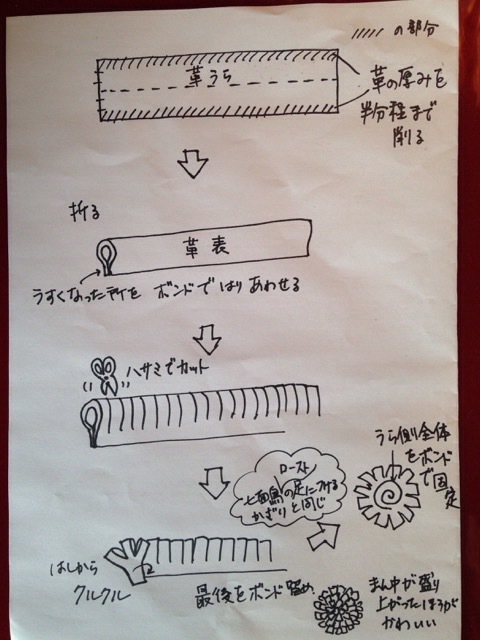 の部分
革うち
革の厚みを
半分程まで
削る
折る
革表
うすくなった所を ボンドではりあわせる
ハサミでカット
ロースト
七面鳥の足につける
かざりと同じ
うら側全体
をボンド
で固定
はしから
クルクル
最後をボンド留め
まん中が盛り
上がったほうが
かわいい